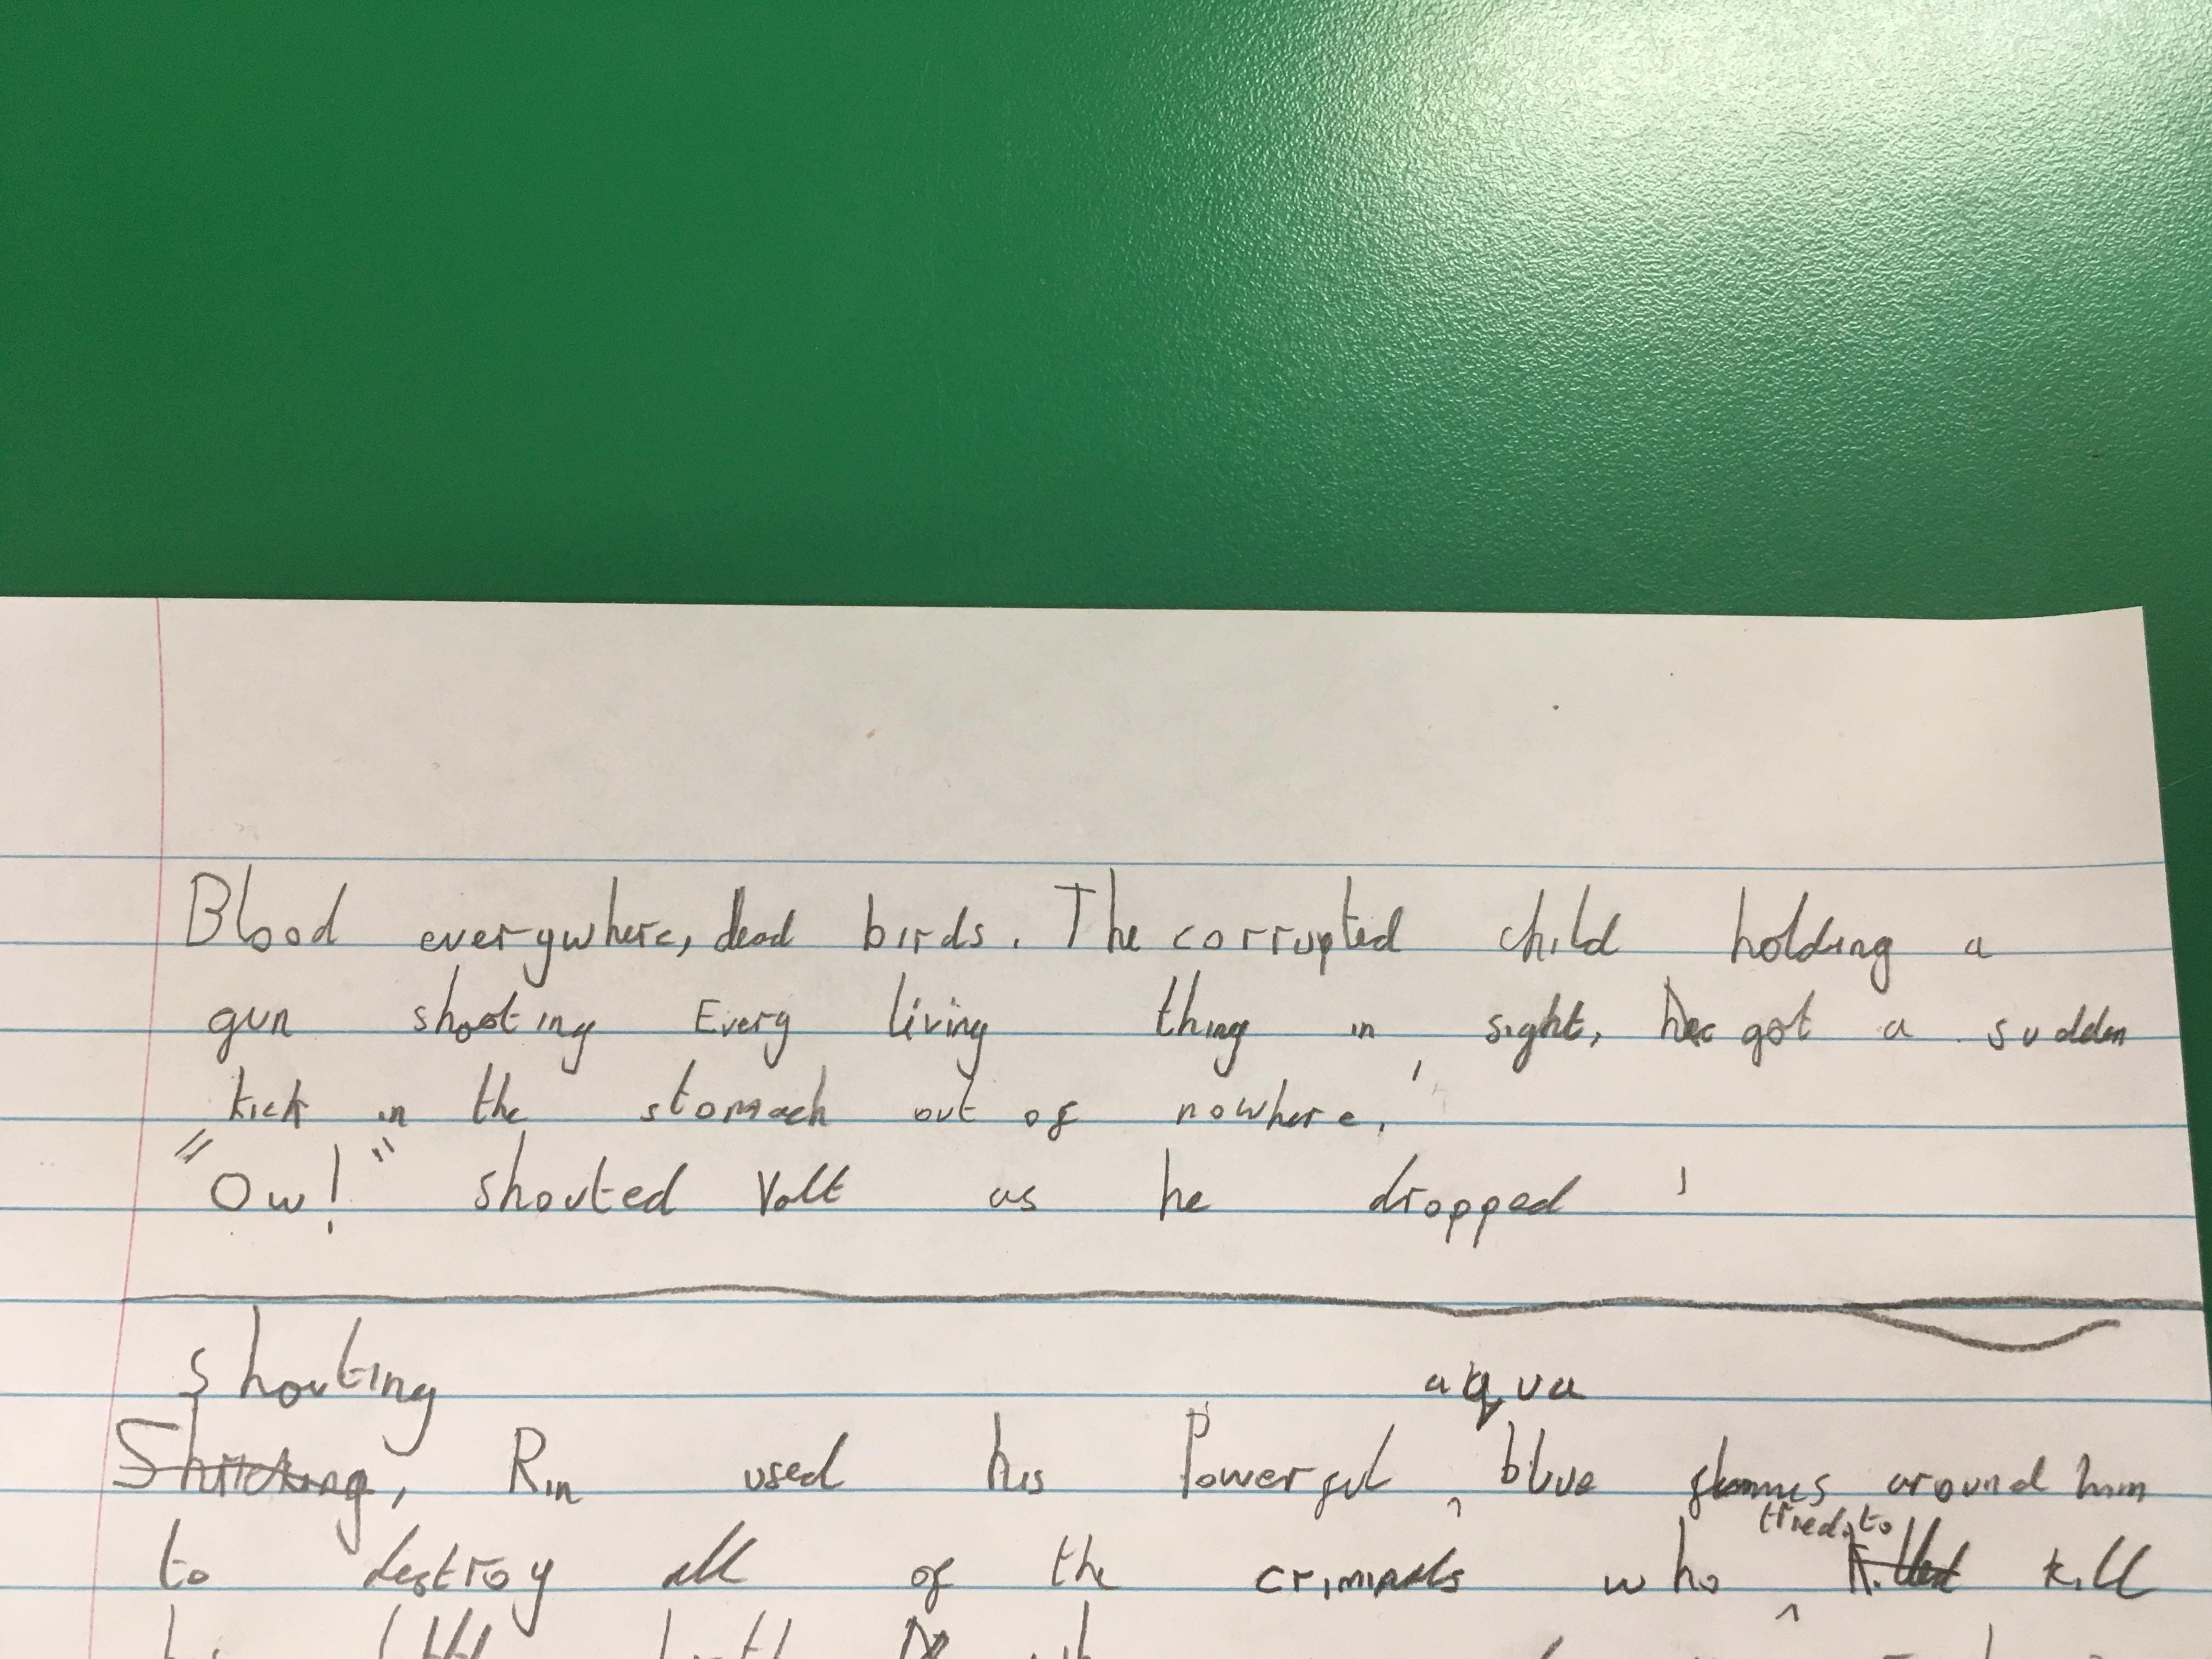 Blood everywhere, dead birds. The corrupted child holding a
gun shooting Every living thing in sight, he got a sudden
kick in the stomach out of nowhere.
"Ow!" shouted Volt as he dropped
shouting
aqua
, Rin used his Powerful ^ blue flames around him
tried to
to destroy all of the criminals who ^ killed kill